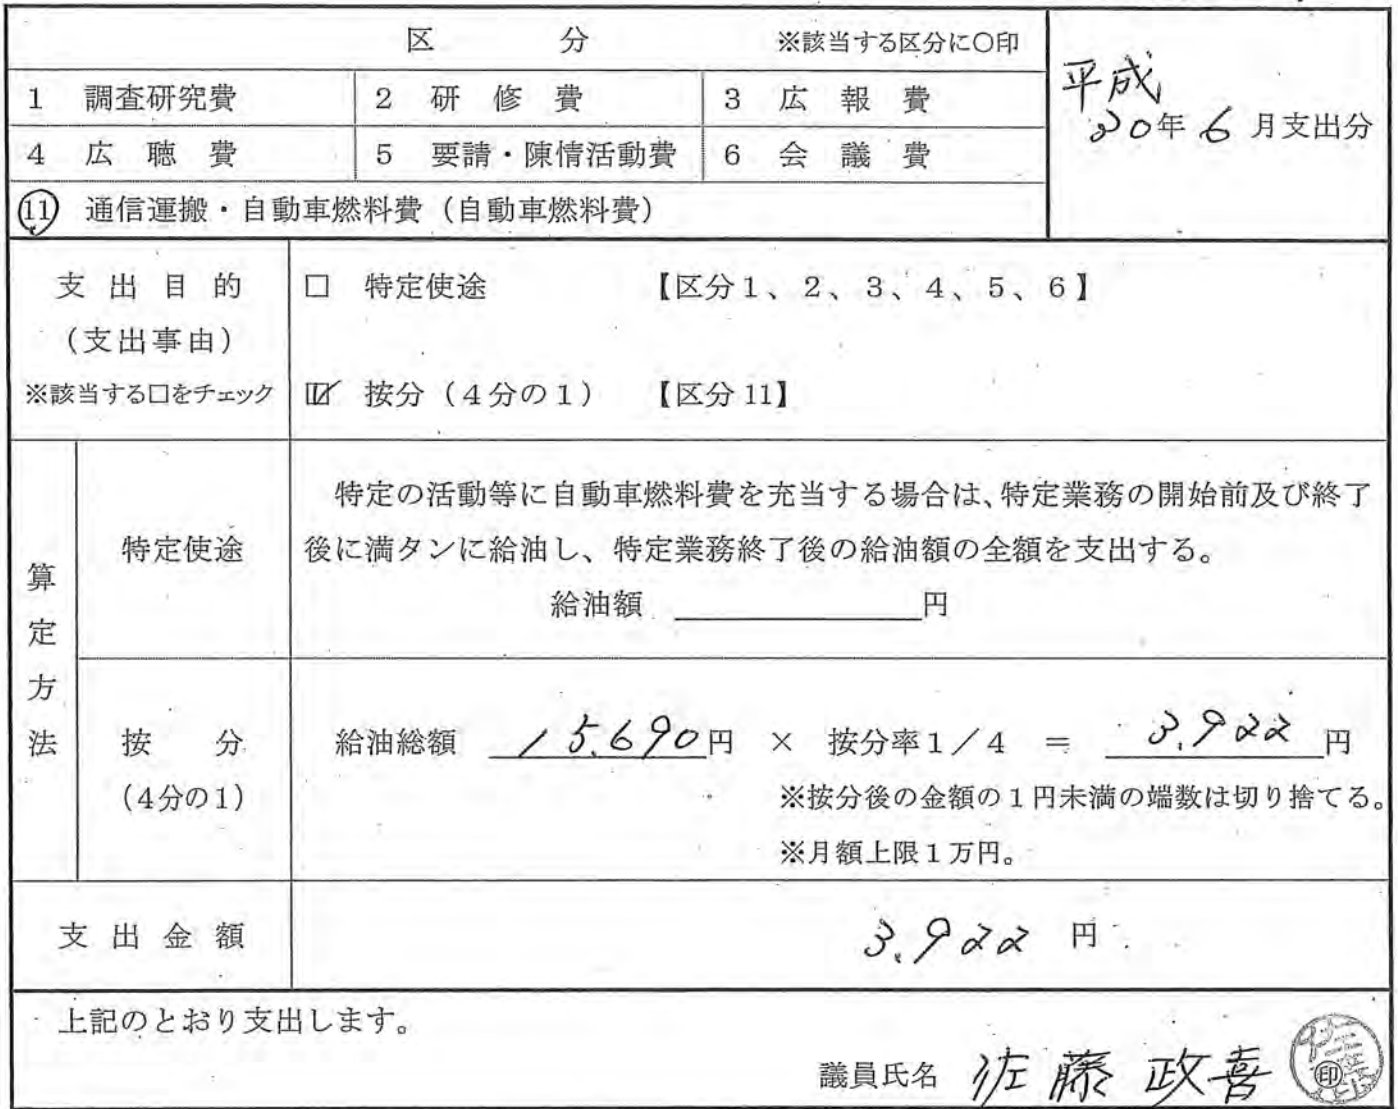 区 分 ※該当する区分に○印
平成
20年 6 月支出分
1 調査研究費 2 研 修 費 3 広 報 費
4 広 聴 費 5 要請・陳情活動費 6 会 議 費
⑪ 通信運搬・自動車燃料費（自動車燃料費）
支 出 目 的
（支出事由）
※該当する□をチェック
□ 特定使途 【区分1、2、3、4、5、6】
☑ 按分（4分の1） 【区分11】
算定方法
特定使途
特定の活動等に自動車燃料費を充当する場合は、特定業務の開始前及び終了
後に満タンに給油し、特定業務終了後の給油額の全額を支出する。
給油額 円
按 分
（4分の1）
給油総額 15.690円 × 按分率1／4 ＝ 3.922 円
※按分後の金額の1円未満の端数は切り捨てる。
※月額上限1万円。
支 出 金 額 3.922 円
上記のとおり支出します。
議員氏名 佐藤 政喜 印